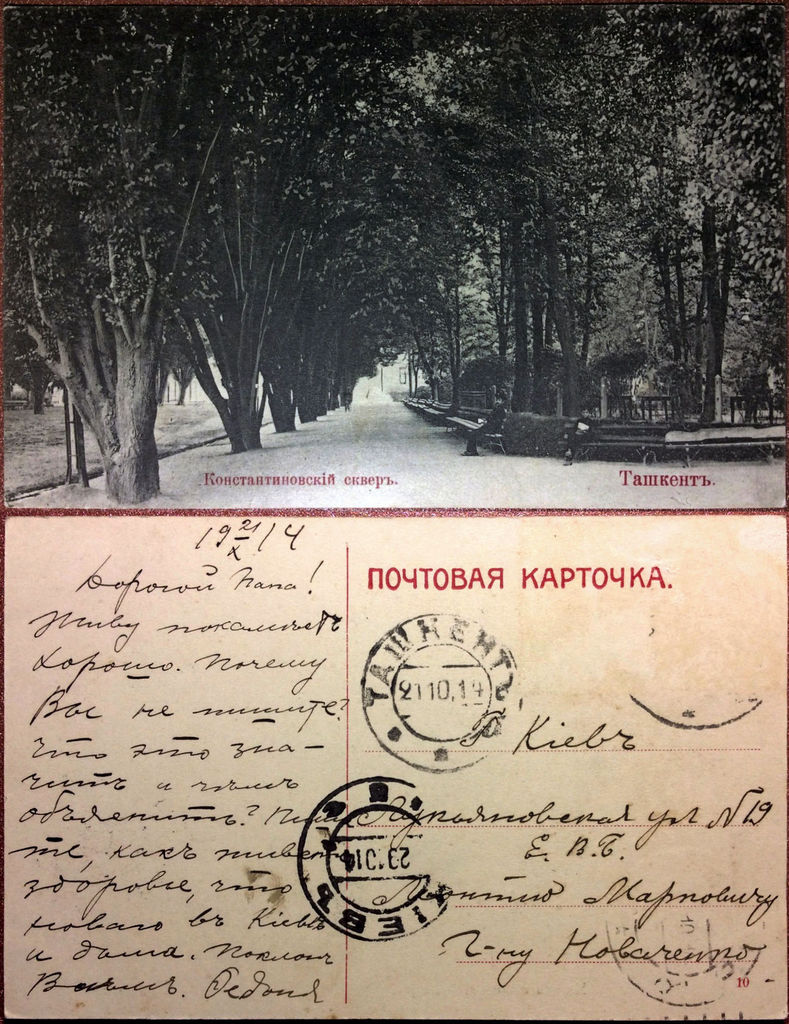 Константиновскій скверъ.
Ташкентъ.
19 21/X 14
Дорогой Папа!
Живу покамѣстъ
хорошо. Почему
Вы не пишите?
Что это зна-
читъ и чѣмъ
объяснить? Пиши
те, какъ живете
здоровье, что
новаго въ Кіевѣ
и дома. Поклонъ
Всѣмъ. Федоня
ПОЧТОВАЯ КАРТОЧКА.
ТАШКЕНТЪ
21 10.14
Г. Кіевъ
Лукьяновская ул №19
Е. В. Б.
Леонтію Марковичу
Г-ну Новаченко
КІЕВЪ
23 10 14
10